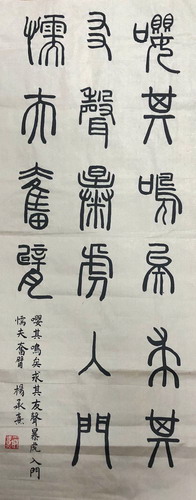 嚶其鳴矣求其
友聲暴虎入門
懦夫奮臂
嚶其鳴矣求其友聲暴虎入門
懦夫奮臂 楊